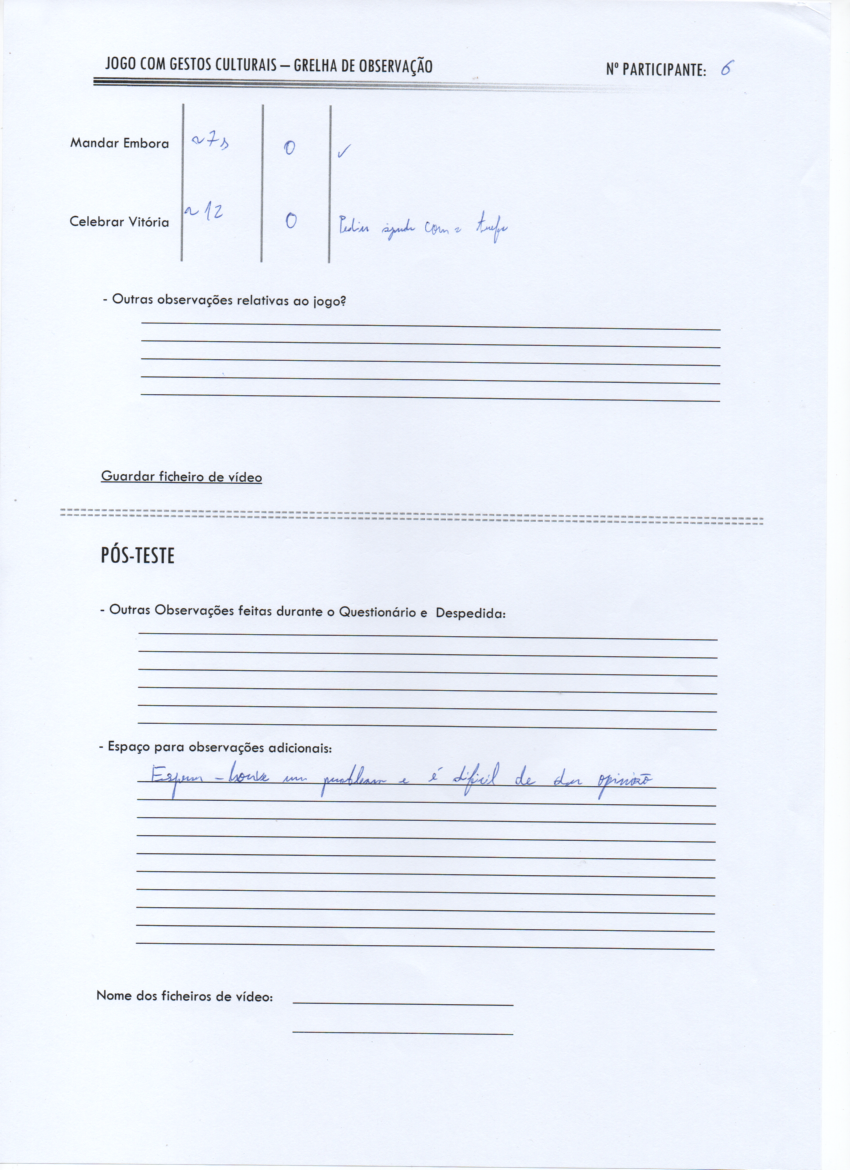 JOGO COM GESTOS CULTURAIS – GRELHA DE OBSERVAÇÃO Nº PARTICIPANTE: 6
Mandar Embora ~7s 0 ✓
Celebrar Vitória ~12 0 Pediu ajuda com a tarefa
- Outras observações relativas ao jogo?
Guardar ficheiro de vídeo
PÓS-TESTE
- Outras Observações feitas durante o Questionário e Despedida:
- Espaço para observações adicionais:
- houve um problema e é dificil de dar opinião
Nome dos ficheiros de vídeo: